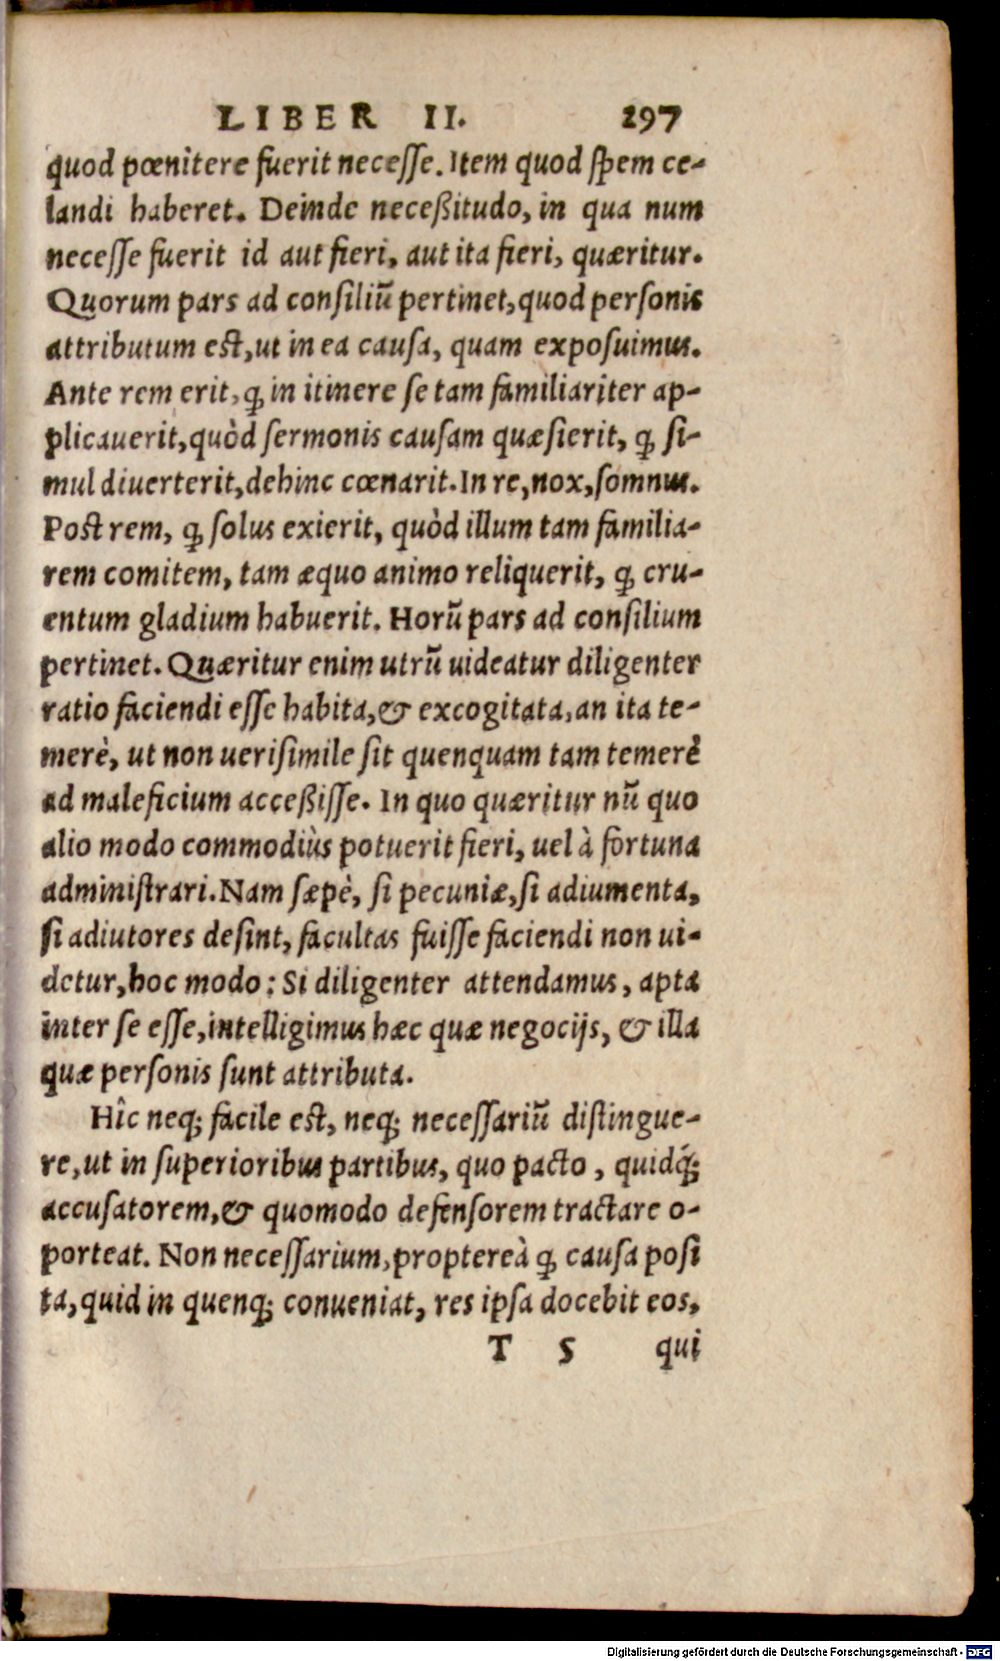 LIBER II. 297
quod pœnitere fuerit necesse. Item quod spem ce-
landi haberet. Deinde neceßitudo, in qua num
necesse fuerit id aut fieri, aut ita fieri, quæritur.
Quorum pars ad consiliũ pertinet, quod personis
attributum est, ut in ea causa, quam exposuimus.
Ante rem erit, ꝙ in itinere se tam familiariter ap-
plicauerit, quòd sermonis causam quæsierit, ꝙ si-
mul diuerterit, dehinc cœnarit. In re, nox, somnus.
Post rem, ꝙ solus exierit, quòd illum tam familia-
rem comitem, tam æquo animo reliquerit, ꝙ cru-
entum gladium habuerit. Horũ pars ad consilium
pertinet. Quæritur enim utrũ uideatur diligenter
ratio faciendi esse habita, & excogitata, an ita te-
merè, ut non uerisimile sit quenquam tam temerè
ad maleficium acceßisse. In quo quæritur nũ quo
alio modo commodiùs potuerit fieri, uel à fortuna
administrari. Nam sæpè, si pecuniæ, si adiumenta,
si adiutores desint, facultas fuisse faciendi non ui-
detur, hoc modo: Si diligenter attendamus, apta
inter se esse, intelligimus hæc quæ negocijs, & illa
quæ personis sunt attributa.
Hîc neq; facile est, neq; necessariũ distingue-
re, ut in superioribus partibus, quo pacto, quidq́;
accusatorem, & quomodo defensorem tractare o-
porteat. Non necessarium, proptereà ꝙ causa posi
ta, quid in quenq; conueniat, res ipsa docebit eos,
T 5 qui
Digitalisierung gefördert durch die Deutsche Forschungsgemeinschaft - DFG